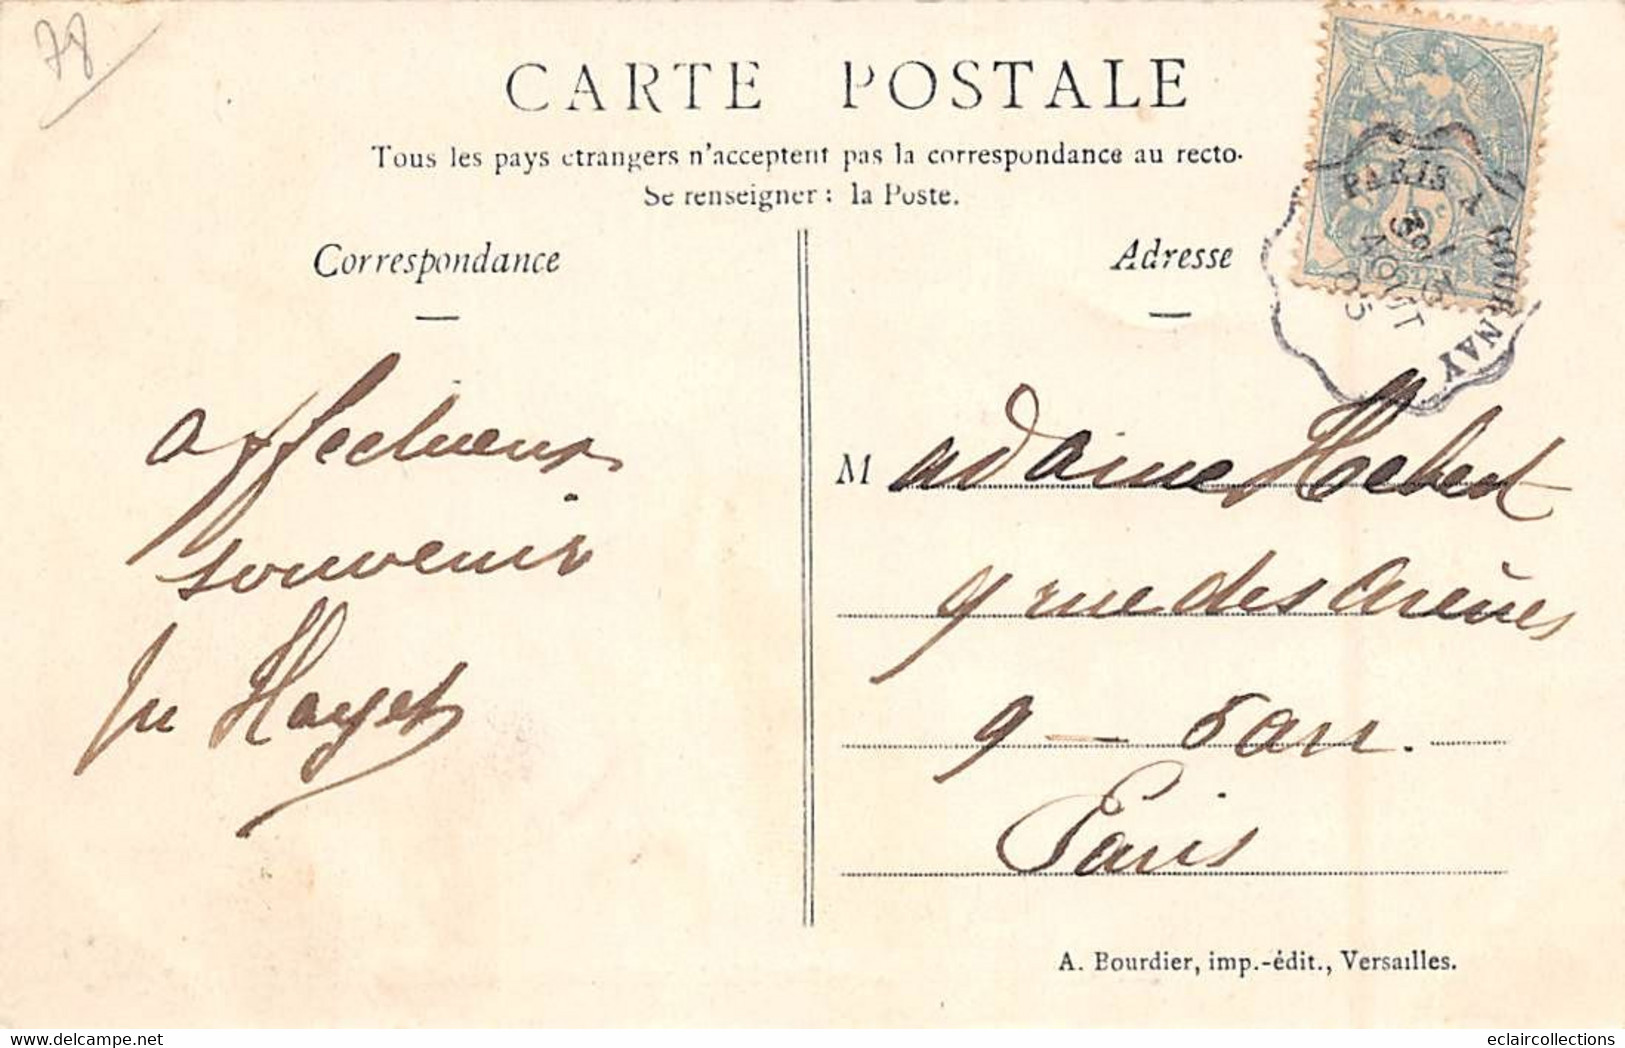 78
CARTE POSTALE
Tous les pays étrangers n'acceptent pas la correspondance au recto.
Se renseigner : la Poste.
Correspondance
Adresse
PARIS A GOURNAY
AOUT
05
affectueux
souvenir
Hayet
Madame Hebert
9 rue des Arènes
9 — 5 arr.
Paris
A. Bourdier, imp.-édit., Versailles.
eclaircollections